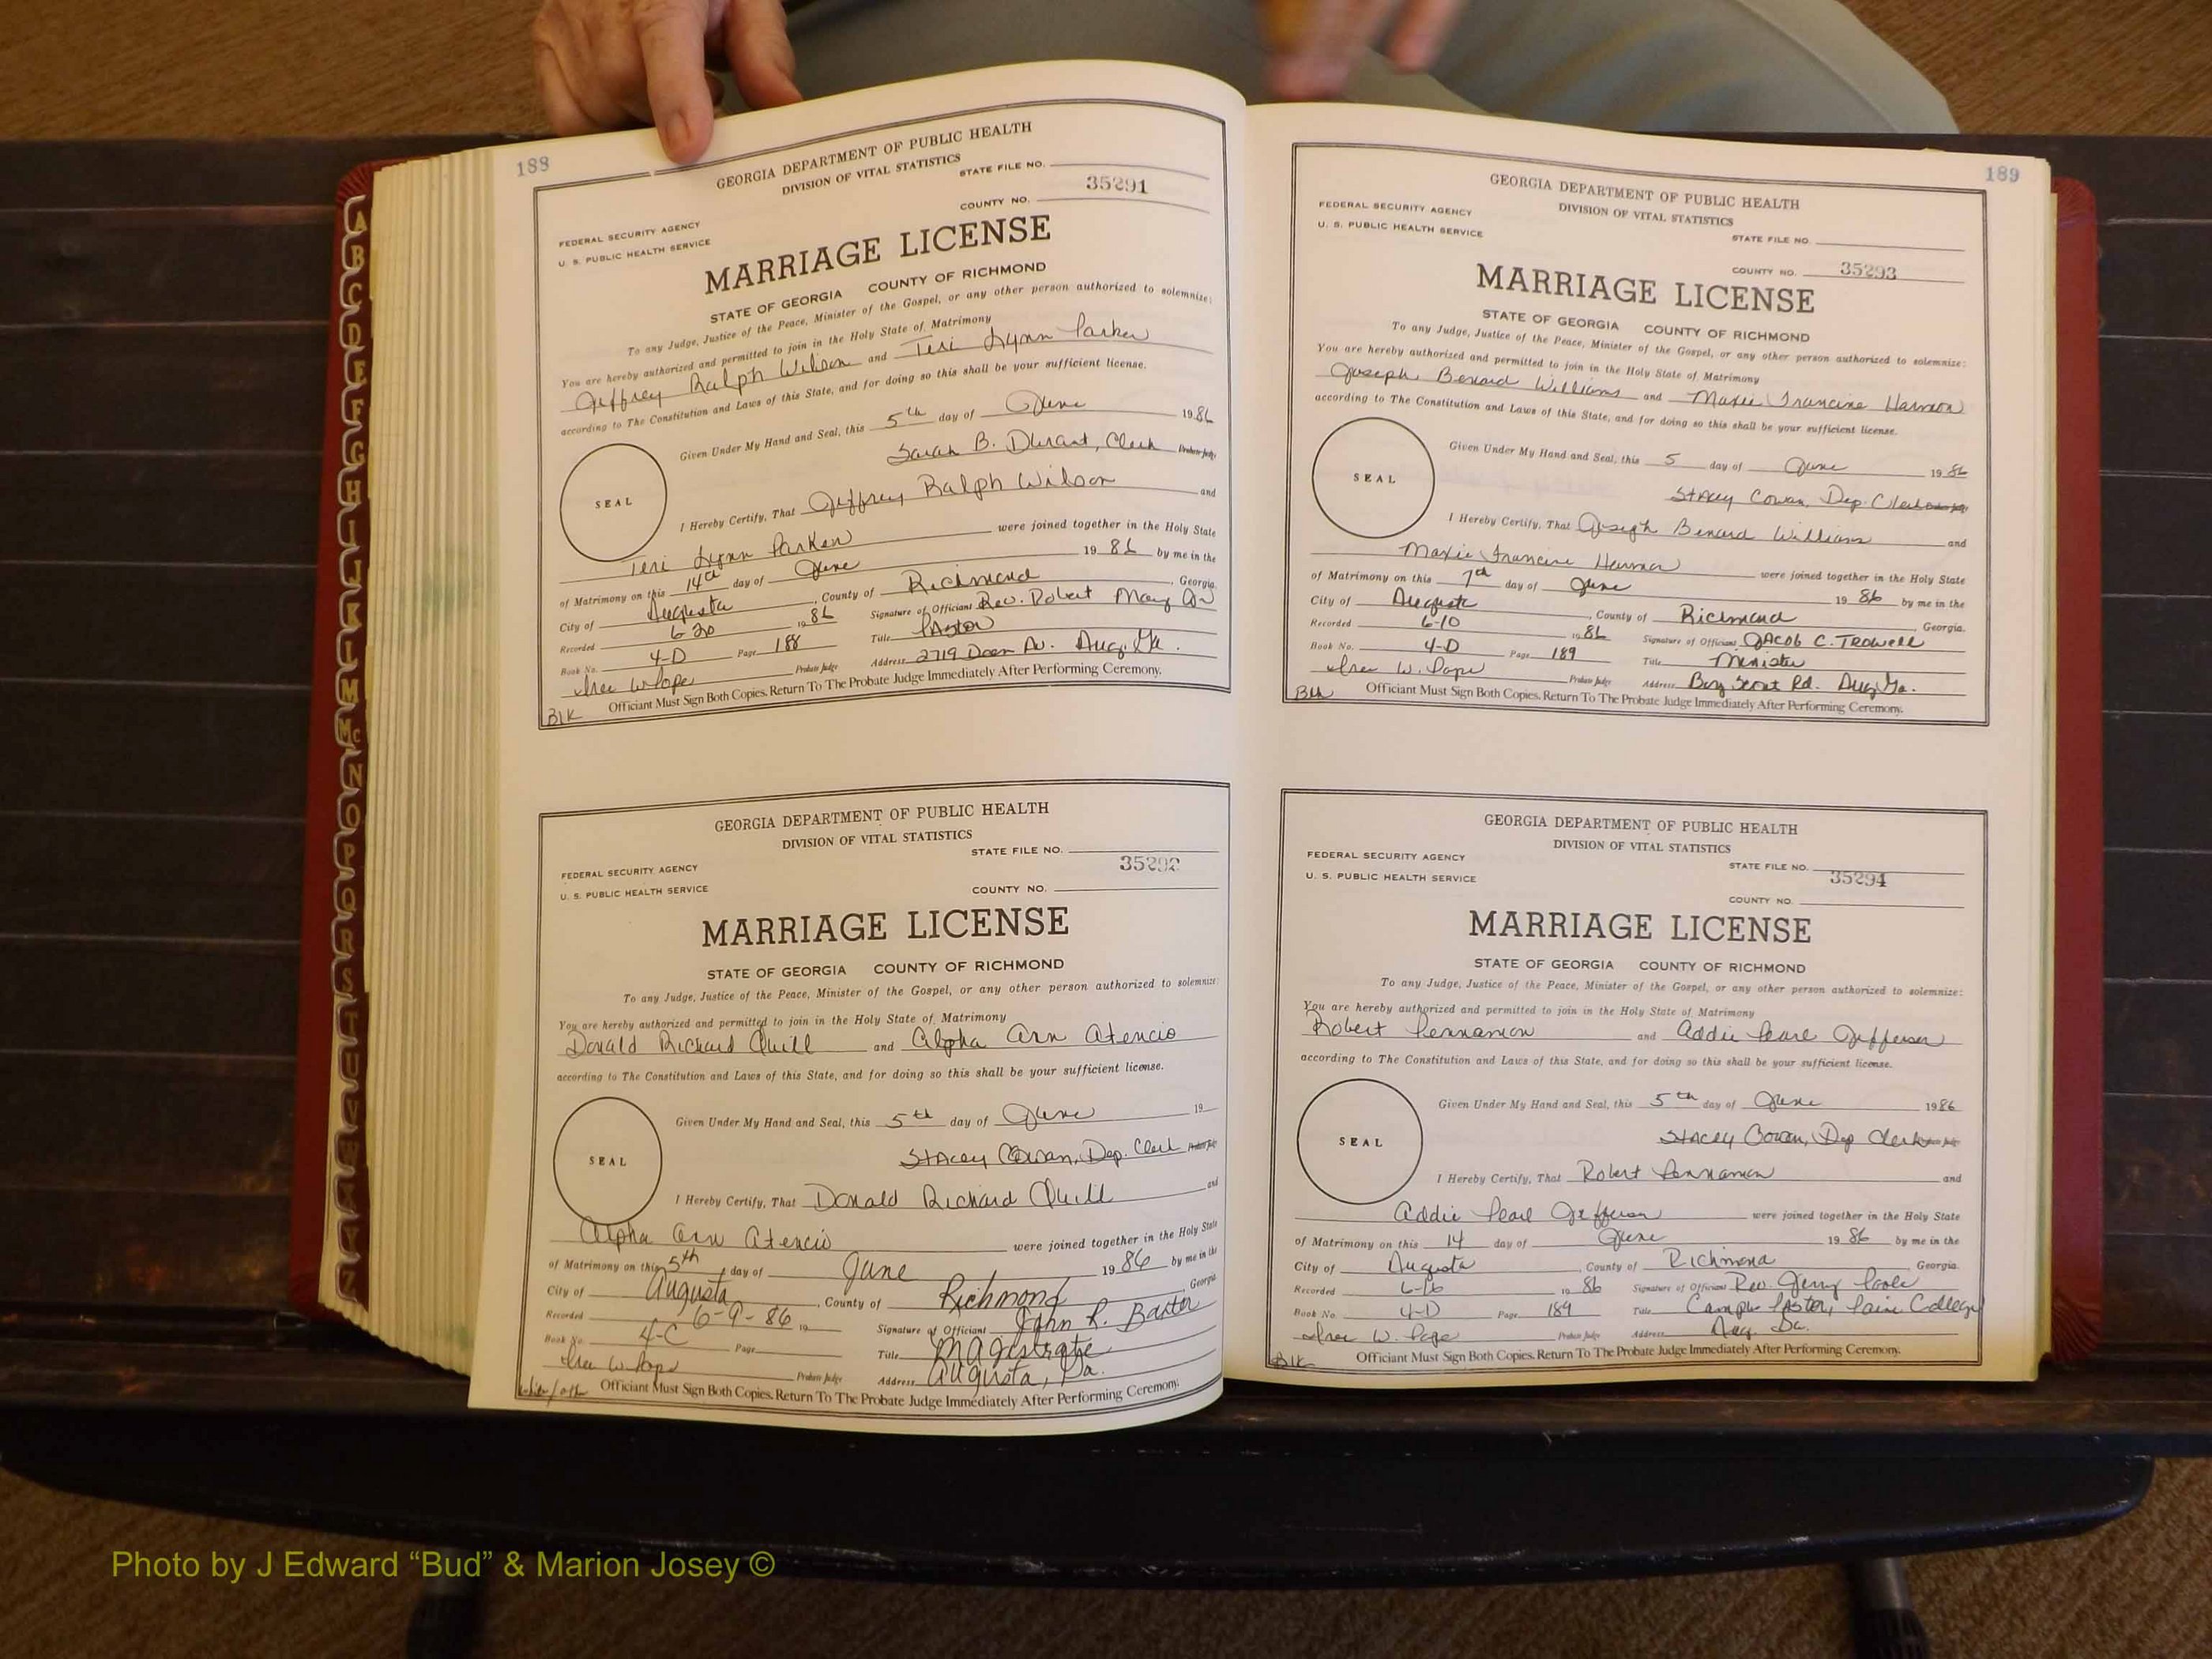 188
GEORGIA DEPARTMENT OF PUBLIC HEALTH
DIVISION OF VITAL STATISTICS
STATE FILE NO.
35291
FEDERAL SECURITY AGENCY
COUNTY NO.
U. S. PUBLIC HEALTH SERVICE
MARRIAGE LICENSE
STATE OF GEORGIA COUNTY OF RICHMOND
To any Judge, Justice of the Peace, Minister of the Gospel, or any other person authorized to solemnize:
You are hereby authorized and permitted to join in the Holy State of Matrimony
Jeffrey Ralph Wilson and Teri Lynn Parker
according to The Constitution and Laws of this State, and for doing so this shall be your sufficient license.
Given Under My Hand and Seal, this 5th day of June 1986
Sarah B. Durant, Clerk Probate Judge
SEAL
I Hereby Certify, That Jeffrey Ralph Wilson and
Teri Lynn Parker were joined together in the Holy State
of Matrimony on this 14th day of June 1986 by me in the
City of Augusta, County of Richmond, Georgia.
Recorded 6-20 1986 Signature of Officiant Rev. Robert
Book No. 4-D Page 188 Title Pastor
W Pope Probate Judge Address 2719 Dean Av. Aug. Ga.
Blk Officiant Must Sign Both Copies. Return To The Probate Judge Immediately After Performing Ceremony.
GEORGIA DEPARTMENT OF PUBLIC HEALTH
DIVISION OF VITAL STATISTICS
STATE FILE NO.
35292
FEDERAL SECURITY AGENCY
U. S. PUBLIC HEALTH SERVICE
COUNTY NO.
MARRIAGE LICENSE
STATE OF GEORGIA COUNTY OF RICHMOND
To any Judge, Justice of the Peace, Minister of the Gospel, or any other person authorized to solemnize:
You are hereby authorized and permitted to join in the Holy State of Matrimony
Donald Richard Quill and Alpha Ann Atencio
according to The Constitution and Laws of this State, and for doing so this shall be your sufficient license.
Given Under My Hand and Seal, this 5th day of June 19
Stacey Cowan, Dep. Clerk Probate Judge
SEAL
I Hereby Certify, That Donald Richard Quill and
Alpha Ann Atencio were joined together in the Holy State
of Matrimony on this 5th day of June 1986 by me in the
City of Augusta, County of Richmond, Georgia
Recorded 6-9-86 19 Signature of Officiant John R. Baxter
Book No. 4-C Page Title Magistrate
W Pope Probate Judge Address Augusta, Ga.
Officiant Must Sign Both Copies. Return To The Probate Judge Immediately After Performing Ceremony.
189
GEORGIA DEPARTMENT OF PUBLIC HEALTH
DIVISION OF VITAL STATISTICS
FEDERAL SECURITY AGENCY
U. S. PUBLIC HEALTH SERVICE
STATE FILE NO.
COUNTY NO. 35293
MARRIAGE LICENSE
STATE OF GEORGIA COUNTY OF RICHMOND
To any Judge, Justice of the Peace, Minister of the Gospel, or any other person authorized to solemnize:
You are hereby authorized and permitted to join in the Holy State of Matrimony
Joseph Benard Williams and Maxie Francine Harmon
according to The Constitution and Laws of this State, and for doing so this shall be your sufficient license.
Given Under My Hand and Seal, this 5 day of June 1986
Stacey Cowan, Dep. Clerk
SEAL
I Hereby Certify, That Joseph Benard Williams and
Maxie Francine Harmon were joined together in the Holy State
of Matrimony on this 7th day of June 1986 by me in the
City of Augusta, County of Richmond Georgia.
Recorded 6-10 1986 Signature of Officiant Jacob C. Trowell
Book No. 4-D Page 189 Title Minister
W. Pope Probate Judge Address Boy Scout Rd. Aug. Ga.
Blk Officiant Must Sign Both Copies. Return To The Probate Judge Immediately After Performing Ceremony.
GEORGIA DEPARTMENT OF PUBLIC HEALTH
DIVISION OF VITAL STATISTICS
FEDERAL SECURITY AGENCY
STATE FILE NO.
35294
U. S. PUBLIC HEALTH SERVICE
COUNTY NO.
MARRIAGE LICENSE
STATE OF GEORGIA COUNTY OF RICHMOND
To any Judge, Justice of the Peace, Minister of the Gospel, or any other person authorized to solemnize:
You are hereby authorized and permitted to join in the Holy State of Matrimony
Robert Pennamon and Addie Pearl Jefferson
according to The Constitution and Laws of this State, and for doing so this shall be your sufficient license.
Given Under My Hand and Seal, this 5th day of June 1986
Stacey Cowan, Dep Clerk
SEAL
I Hereby Certify, That Robert Pennamon and
Addie Pearl Jefferson were joined together in the Holy State
of Matrimony on this 14 day of June 1986 by me in the
City of Augusta, County of Richmond Georgia
Recorded 6-16 1986 Signature of Officiant Rev. Jerry Poole
Book No. 4-D Page 189 Title Campus Pastor, Paine College
W. Pope Probate Judge Address Aug. Ga.
Blk Officiant Must Sign Both Copies. Return To The Probate Judge Immediately After Performing Ceremony.
A
B
C
D
E
F
G
H
I
J
K
L
M
Mc
N
O
P
Q
R
S
T
U
V
W
X
Y
Z
Photo by J Edward “Bud” & Marion Josey ©